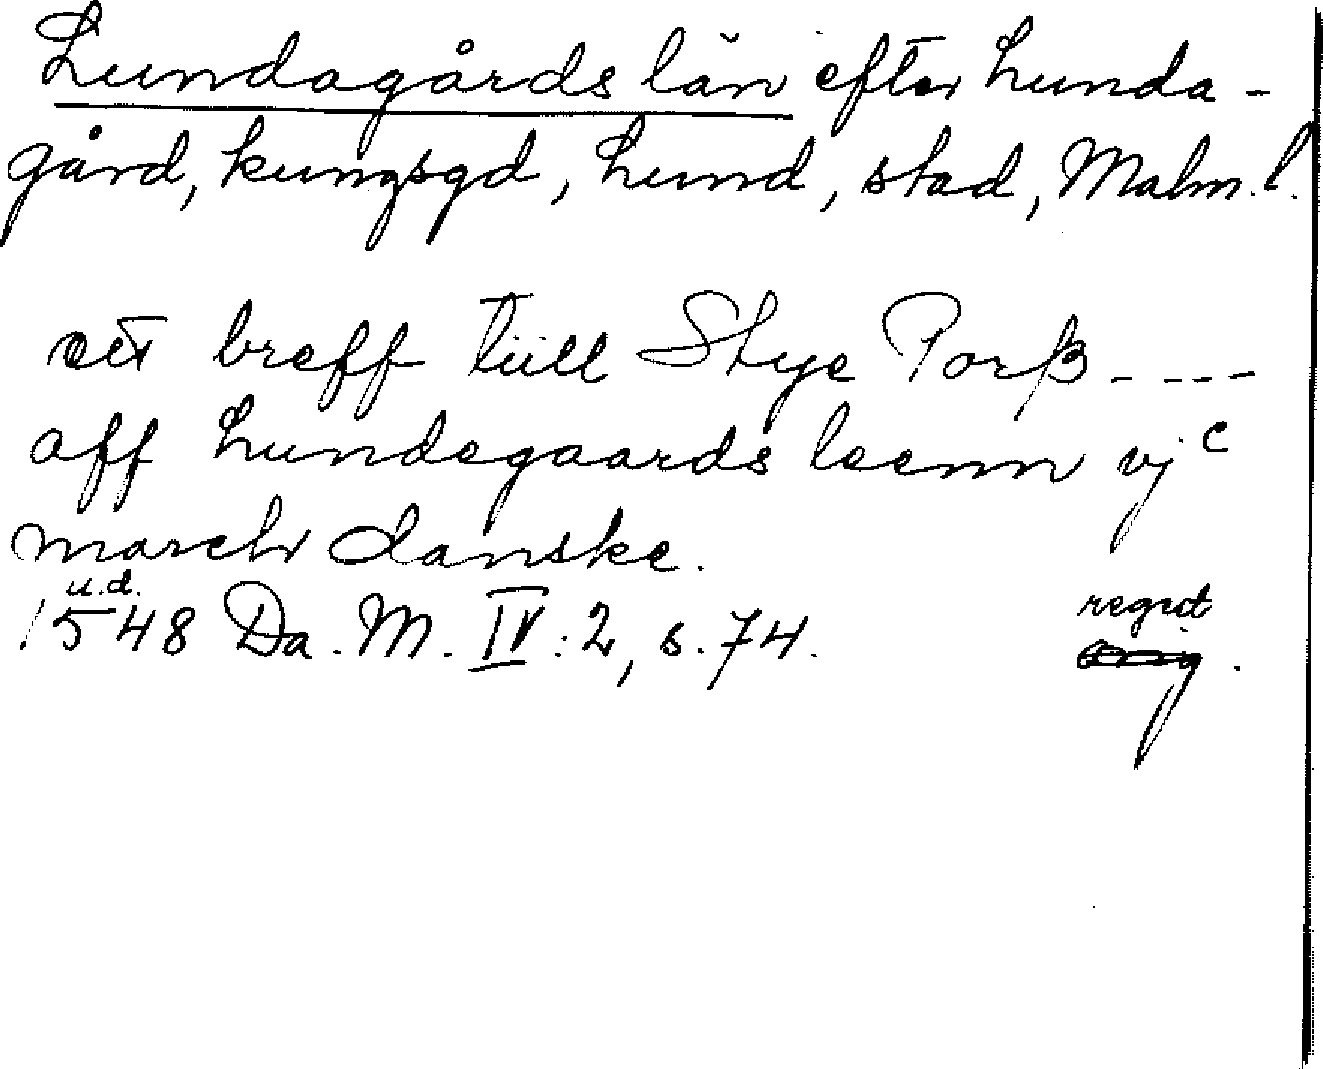 Lundagårds län efter Lunda-
gård, kungsgd, Lund, stad, Malm. l.
ett breff tiill Stye Porß - - - -
aff Lundegaards leenn vj c
march danske.
u.d.
1548 Da. M. IV: 2, s. 74.
regist